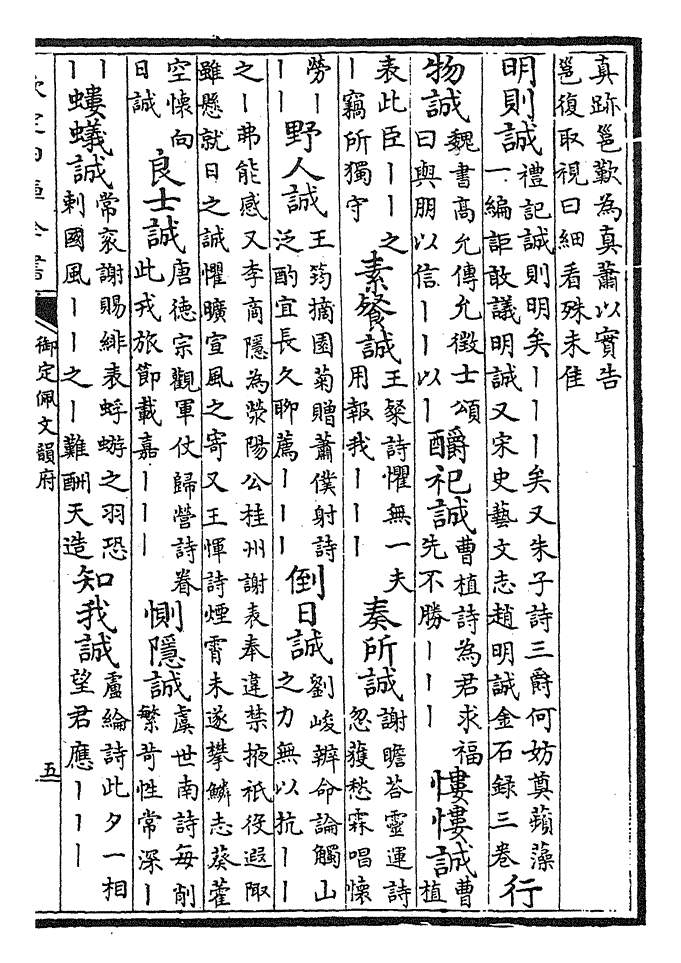 真跡邕歎為真蕭以實告
邕復取視曰細看殊未佳
明則誠 禮記誠則明矣｜｜｜矣又朱子詩三爵何妨奠蘋藻
一編詎敢議明誠又宋史藝文志趙明誠金石録三卷 行
物誠 魏書高允傳允徵士頌
曰與朋以信｜｜以｜ 釂祀誠 曹植詩為君求福
先不勝｜｜｜ 慺慺誠 曹
植
表此臣｜｜之
｜竊所獨守 素餐誠 王粲詩懼無一夫
用報我｜｜｜ 奏所誠 謝瞻荅靈運詩
忽獲愁霖唱懷
勞｜
｜｜ 野人誠 王筠摘園菊贈蕭僕射詩
泛酌宜長久聊薦｜｜｜ 倒日誠 劉峻辯命論觸山
之力無以抗｜｜
之｜弗能感又李商隱為滎陽公桂州謝表奉違禁掖祇役遐陬
雖懸就日之誠懼曠宣風之寄又王惲詩煙霄未遂攀鱗志葵藿
空懷向
日誠 良士誠 唐德宗觀軍仗歸營詩眷
此戎旅節載嘉｜｜｜ 惻隱誠 虞世南詩每削
繁苛性常深｜
｜
｜ 螻蟻誠 常袞謝賜緋表蜉蝣之羽恐
刺國風｜｜之｜難酬天造 知我誠 盧綸詩此夕一相
望君應｜｜｜
欽定四庫全書
御定佩文韻府
五